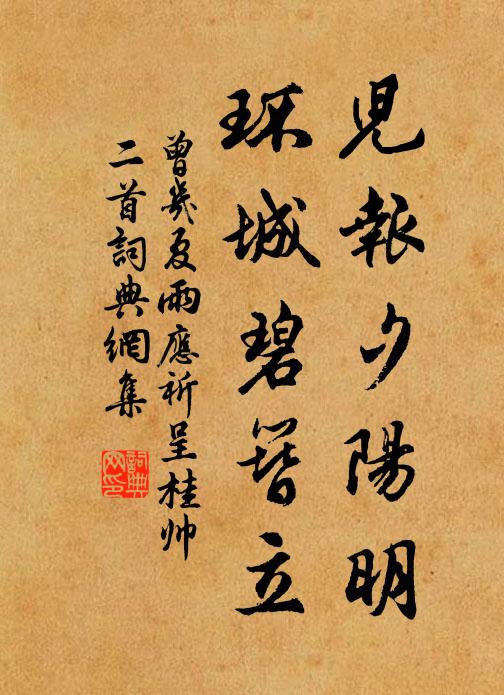 兒報夕陽明
环城碧簪立
曾幾夏雨應祈呈桂帅
二首詞典網集
詞典
网印